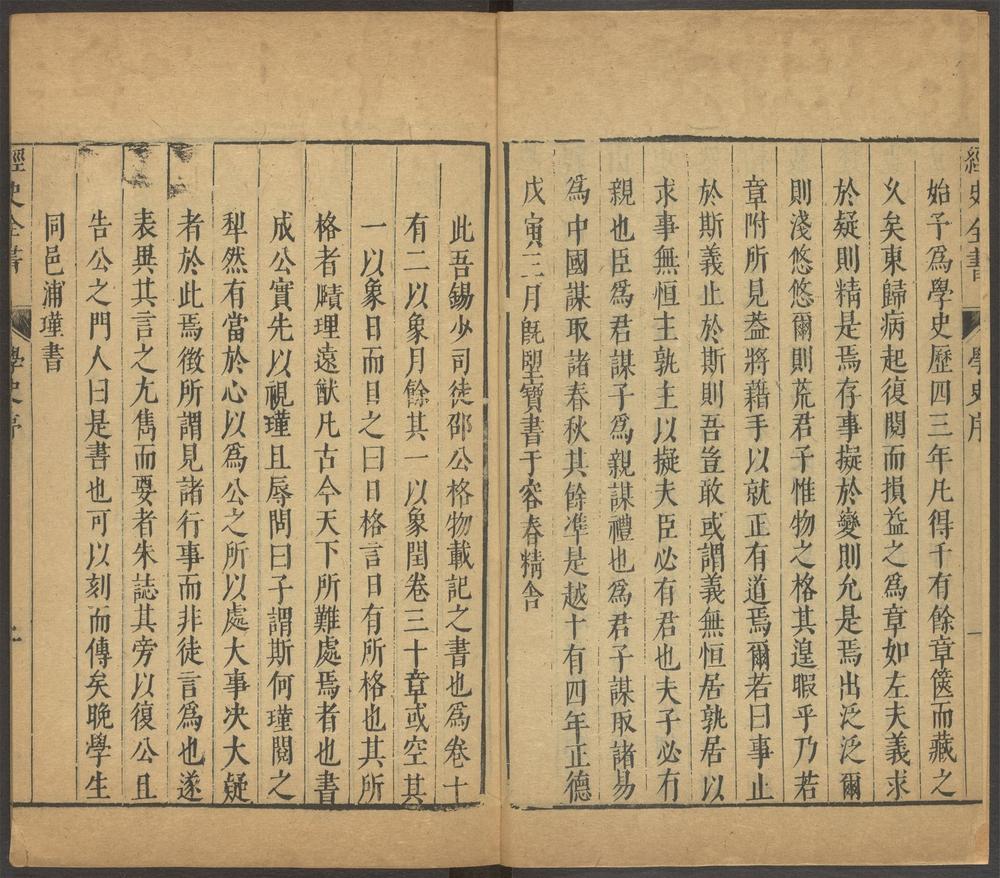 經史全書
學史序
一
始予爲學史歷四三年凡得千有餘章篋而藏之
乆矣東歸病起復閱而損益之爲章如左夫義求
於疑則精是焉存事擬於變則允是焉出泛泛爾
則淺悠悠爾則荒君子惟物之格其遑暇乎乃若
章附所見葢將藉手以就正有道焉爾若曰事止
於斯義止於斯則吾豈敢或謂義無恒居孰居以
求事無恒主孰主以擬夫臣必有君也夫子必有
親也臣爲君謀子爲親謀禮也爲君子謀取諸易
爲中國謀取諸春秋其餘凖是越十有四年正德
戊寅三月旣朢寶書于容春精舍
此吾錫少司徒邵公格物載記之書也爲卷十
有二以象月餘其一以象閏卷三十章或空其
一以象日而目之曰日格言日有所格也其所
格者賾理遠猷凡古今天下所難處焉者也書
成公實先以視瑾且辱問曰子謂斯何瑾閱之
犁然有當於心以爲公之所以處大事决大疑
者於此焉徴所謂見諸行事而非徒言焉也遂
表異其言之尢雋而要者朱誌其旁以復公且
告公之門人曰是書也可以刻而傳矣晚學生
同邑浦瑾書
經史全書
學史序